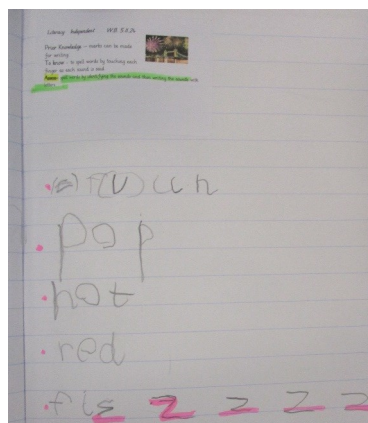 Literacy Independent
Prior Knowledge – marks can be made
for writing
To know – to spell words by touching each
finger as each sound is said
spell words by identifying the sounds and then writing the sounds with
pop
hot
red
z z z z